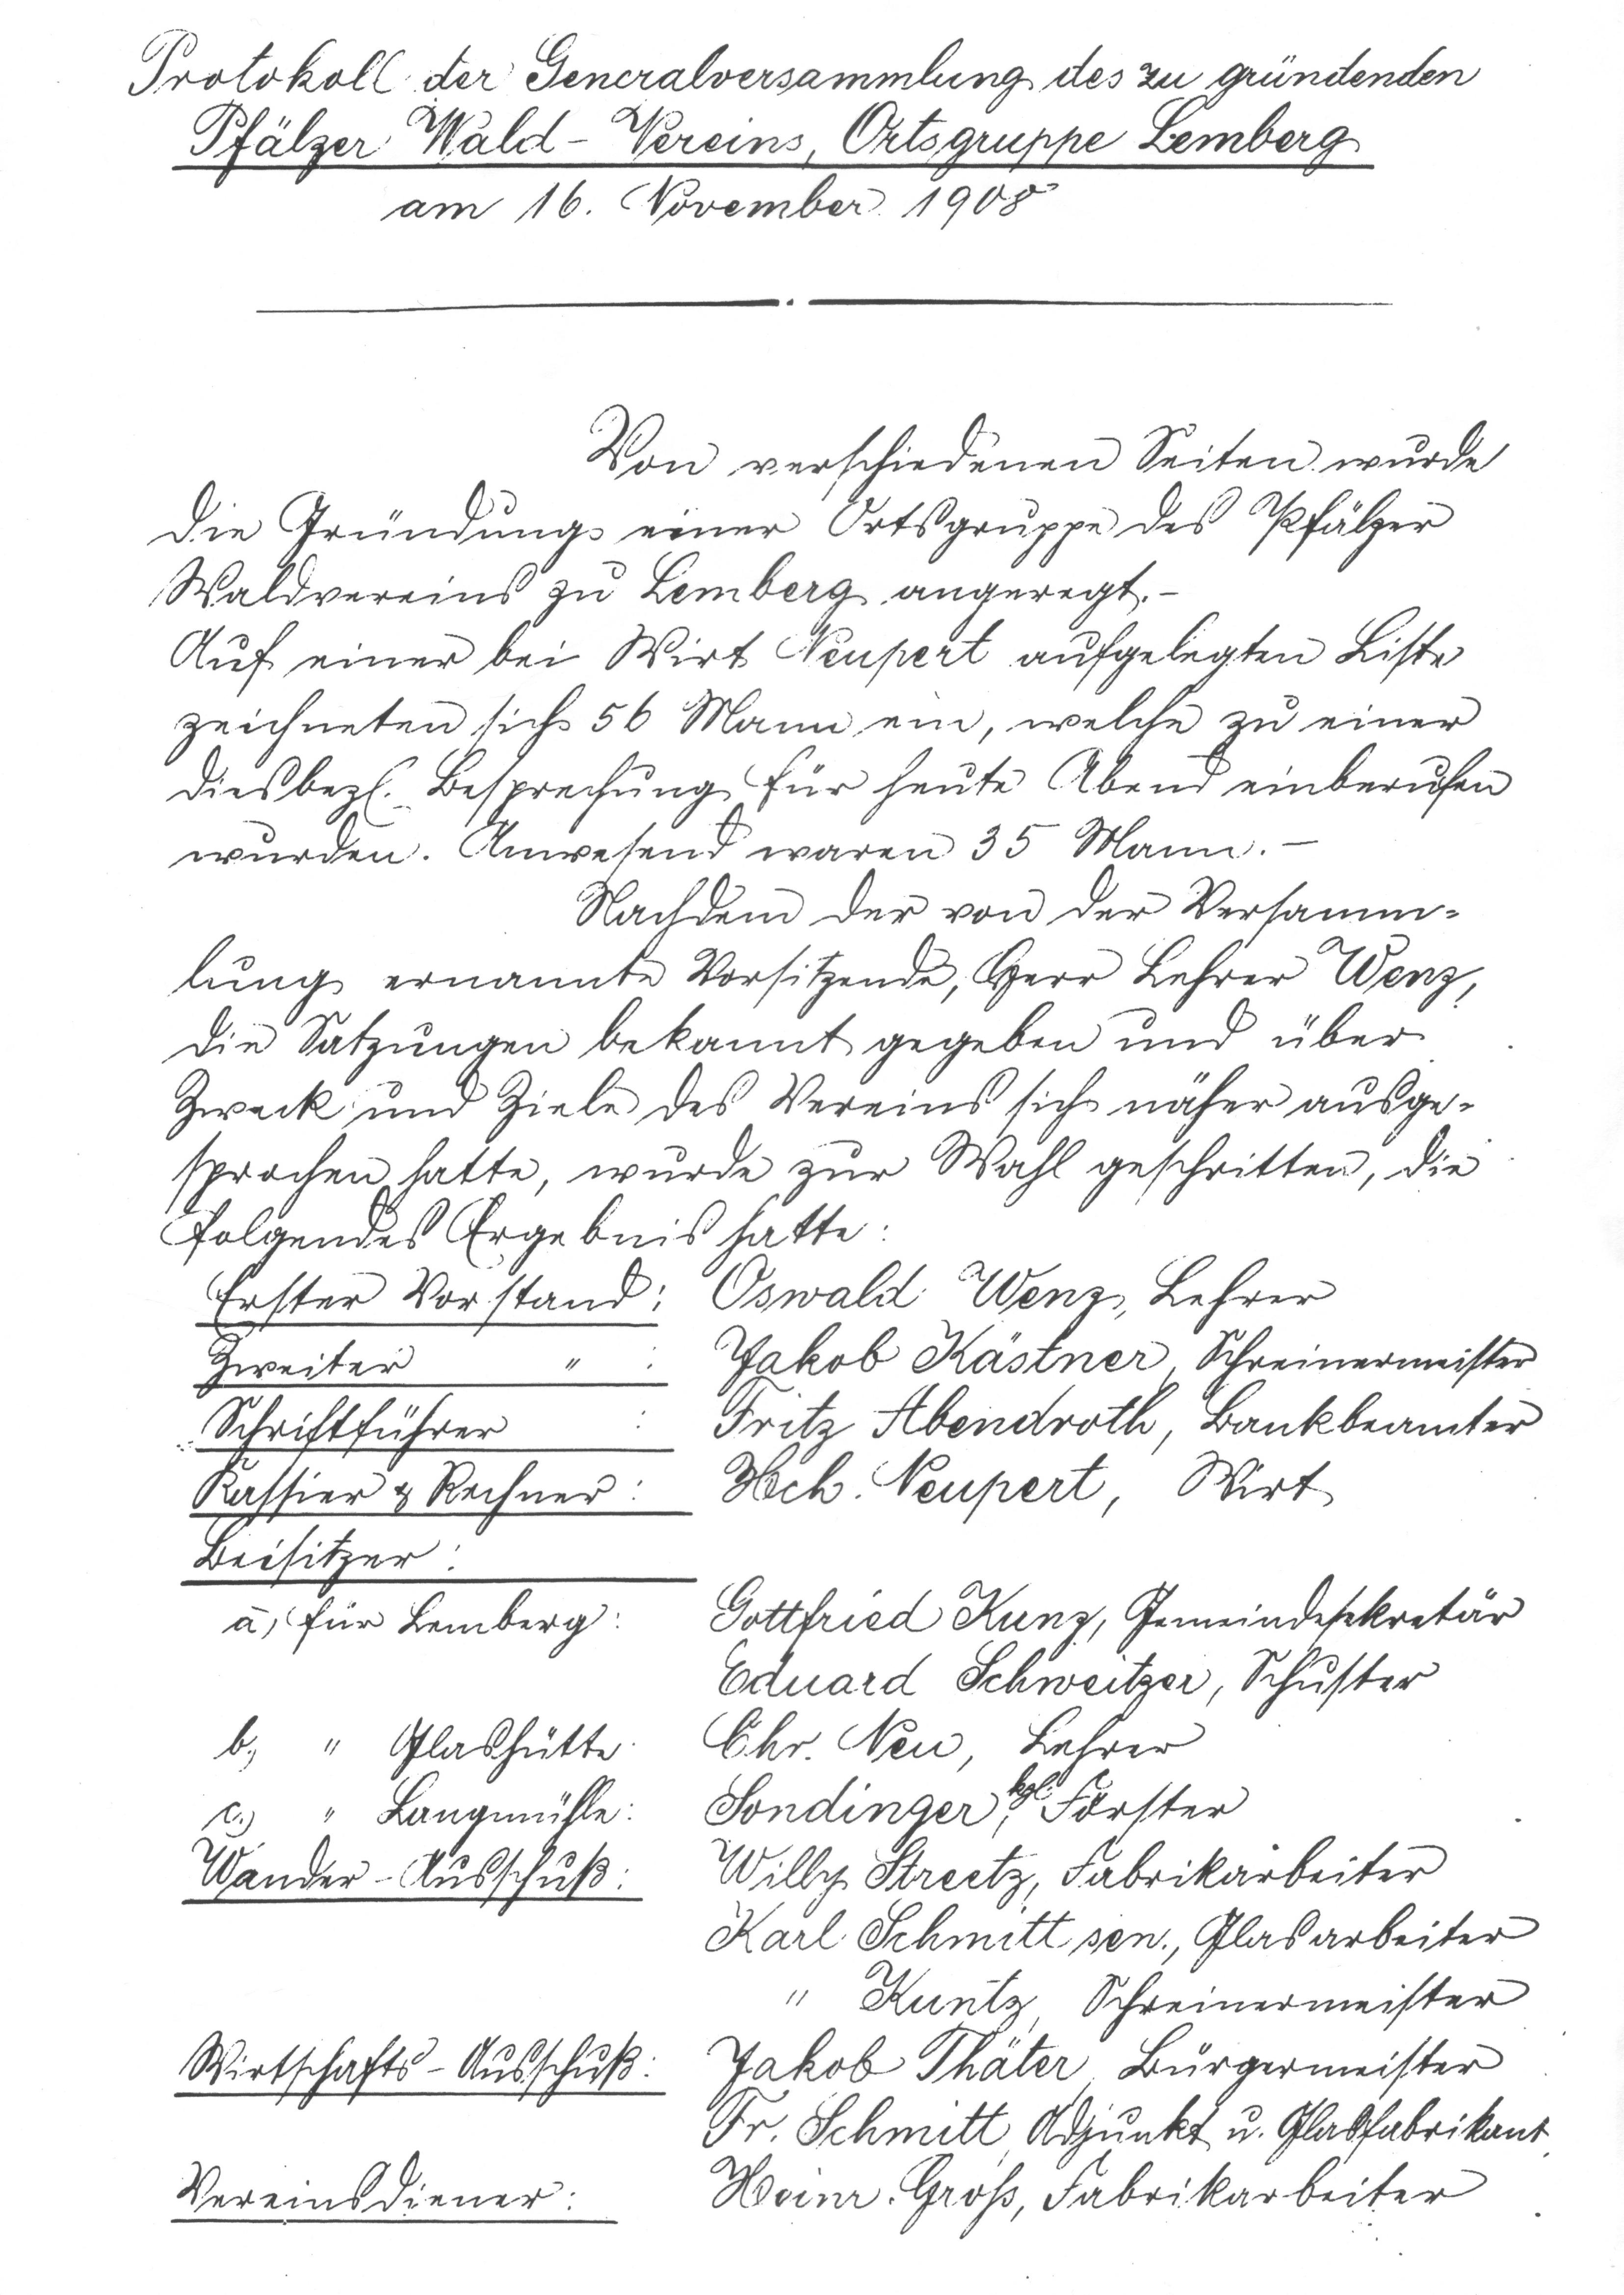 Protokoll der Generalversammlung des zu gründenden
Pfälzer Wald-Vereins, Ortsgruppe Lemberg
am 16. November 1908
Von verschiedenen Seiten wurde
die Gründung einer Ortsgruppe des Pfälzer
Waldvereins zu Lemberg angeregt.-
Auf einer bei Wirt Neupert aufgelegten Liste
zeichneten sich 56 Mann ein, welche zu einer
diesbezl. Besprechung für heute Abend einberufen
wurden. Anwesend waren 35 Mann.-
Nachdem der von der Versamm-
lung ernannte Vorsitzende, Herr Lehrer Wenz,
die Satzungen bekannt gegeben und über
Zweck und Ziele des Vereins sich näher ausge-
sprochen hatte, wurde zur Wahl geschritten, die
folgendes Ergebnis hatte:
Erster Vorstand: Oswald Wenz, Lehrer
Zweiter " : Jakob Kästner, Schreinermeister
Schriftführer : Fritz Abendroth, Bankbeamter
Kassier & Rechner: Hch. Neupert, Wirt
Beisitzer:
a, für Lemberg: Gottfried Kunz, Gemeindesekretär
Eduard Schweitzer, Schuster
b, " Glashütte: Chr. Neu, Lehrer
c.) " Langmühle: Sondinger, kgl. Förster
Wander-Ausschuß: Willy Streetz, Fabrikarbeiter
Karl Schmitt sen., Glasarbeiter
" Kuntz, Schreinermeister
Wirtschafts-Ausschuß: Jakob Thäter, Bürgermeister
Fr. Schmitt, Adjunkt u. Glasfabrikant
Vereinsdiener: Heinr. Groß, Fabrikarbeiter